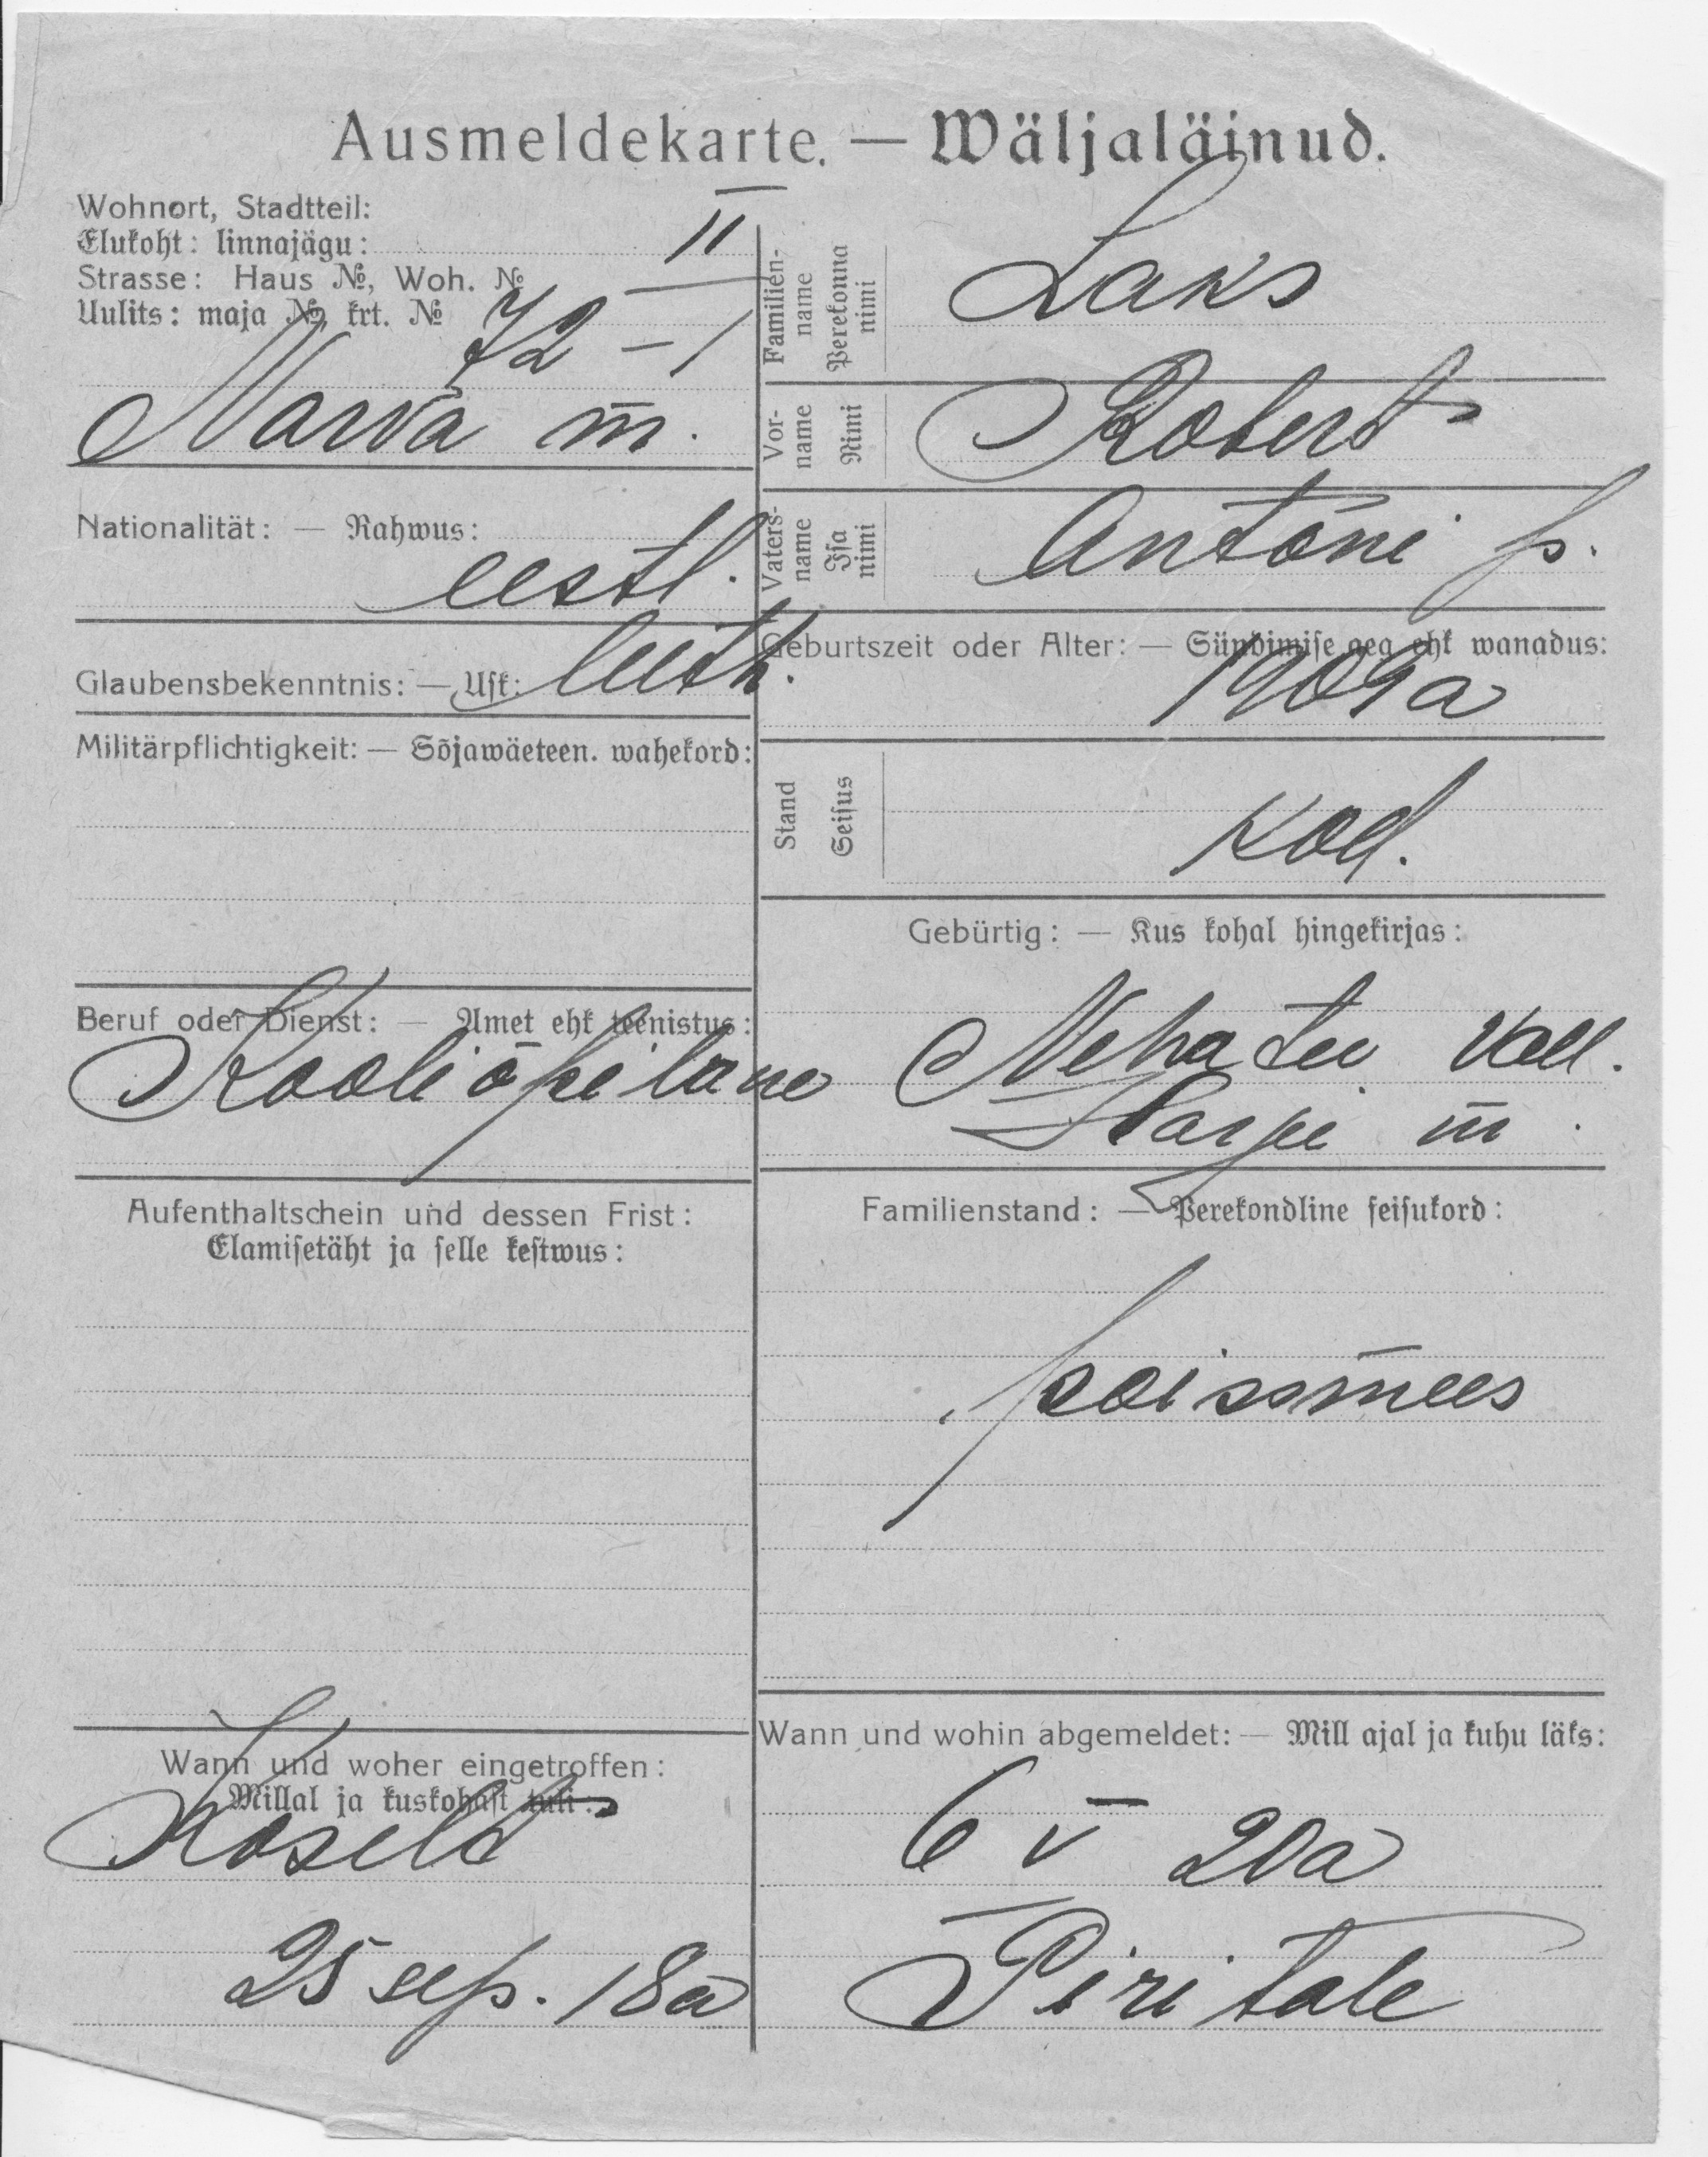 Ausmeldekarte. — Wäljaläinud.
Wohnort, Stadtteil:
Elukoht: linnajägu: II
Strasse: Haus №, Woh. №
Uulits: maja № krt. № 72 – 1
Narva m.
Nationalität: — Rahwus:
eestl.
Glaubensbekenntnis: — Usk: luth.
Militärpflichtigkeit: — Sõjawäeteen. wahekord:
Beruf oder Dienst: — Amet ehk teenistus:
Kooliõpilane
Aufenthaltschein und dessen Frist:
Elamisetäht ja selle kestwus:
Wann und woher eingetroffen:
Millal ja kuskohast tuli:
Koselt
25 sep. 18 a
Familien-
name
Perekonna
nimi
Laks
Vor-
name
Nimi
Robert
Vaters-
name
Isa
nimi
Antoni p.
Geburtszeit oder Alter: — Sündimise aeg ehk wanadus:
1909 a
Stand
Seisus
kod.
Gebürtig: — Kus kohal hingekirjas:
Nehatu vall.
Harju m.
Familienstand: — Perekondline seisukord:
poissmees
Wann und wohin abgemeldet: — Mill ajal ja kuhu läks:
6 V 20 a
Piritale